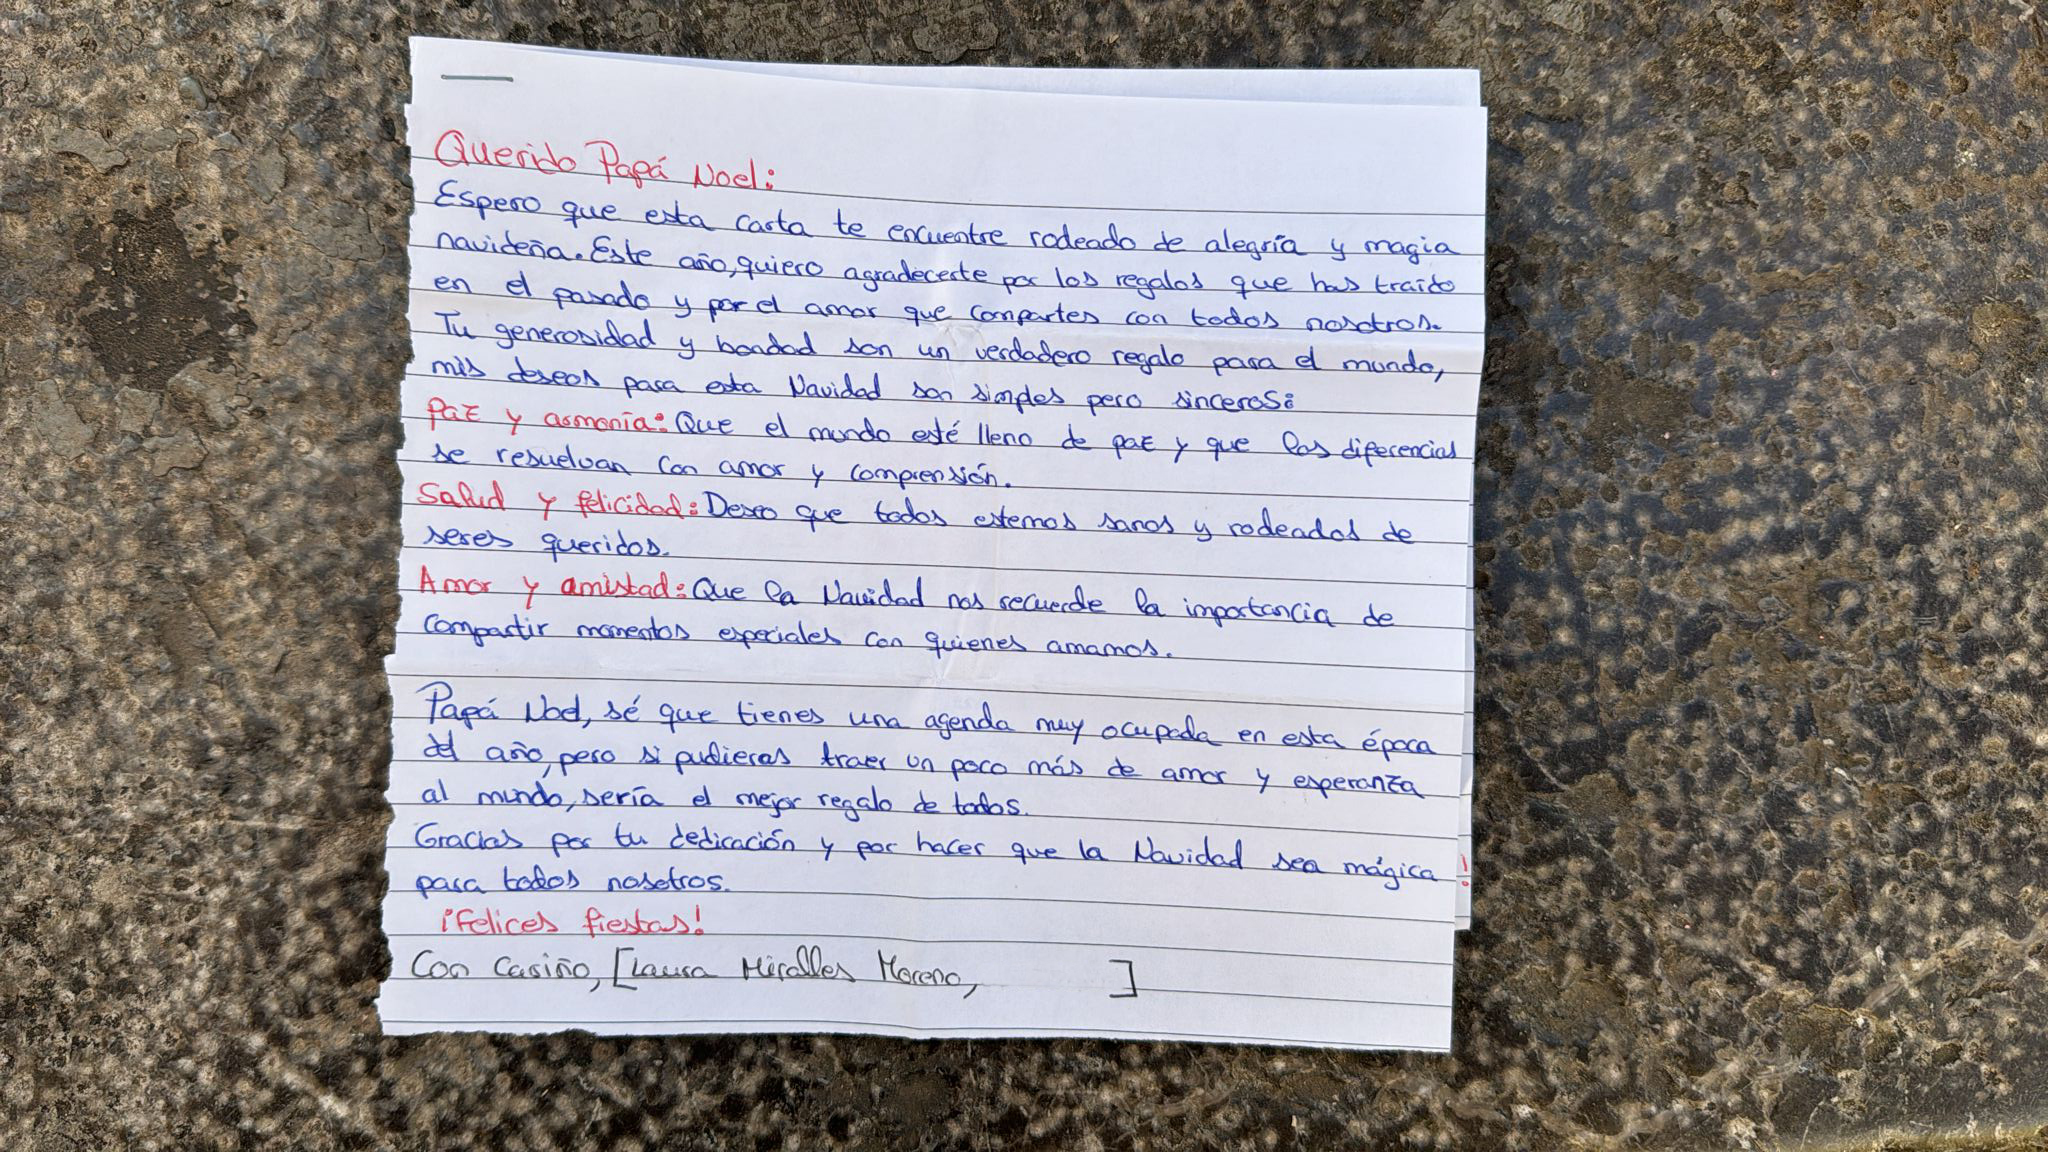 Querido Papá Noel:
Espero que esta carta te encuentre rodeado de alegría y magia
navideña. Este año, quiero agradecerte por los regalos que has traido
en el pasado y por el amor que compartes con todos nosotros.
Tu generosidad y bondad son un verdadero regalo para el mundo,
mis deseos para esta Navidad son simples pero sinceros:
Paz y armonía: Que el mundo esté lleno de paz y que las diferencias
se resuelvan con amor y comprensión.
Salud y felicidad: Deseo que todos estemos sanos y rodeados de
seres queridos.
Amor y amistad: Que la Navidad nos recuerde la importancia de
compartir momentos especiales con quienes amamos.
Papá Noel, sé que tienes una agenda muy ocupada en esta época
del año, pero si pudieras traer un poco más de amor y esperanza
al mundo, sería el mejor regalo de todos.
Gracias por tu dedicación y por hacer que la Navidad sea mágica
para todos nosotros.
¡Felices fiestas!
Con Cariño, [Laura Miralles Moreno, ]
!